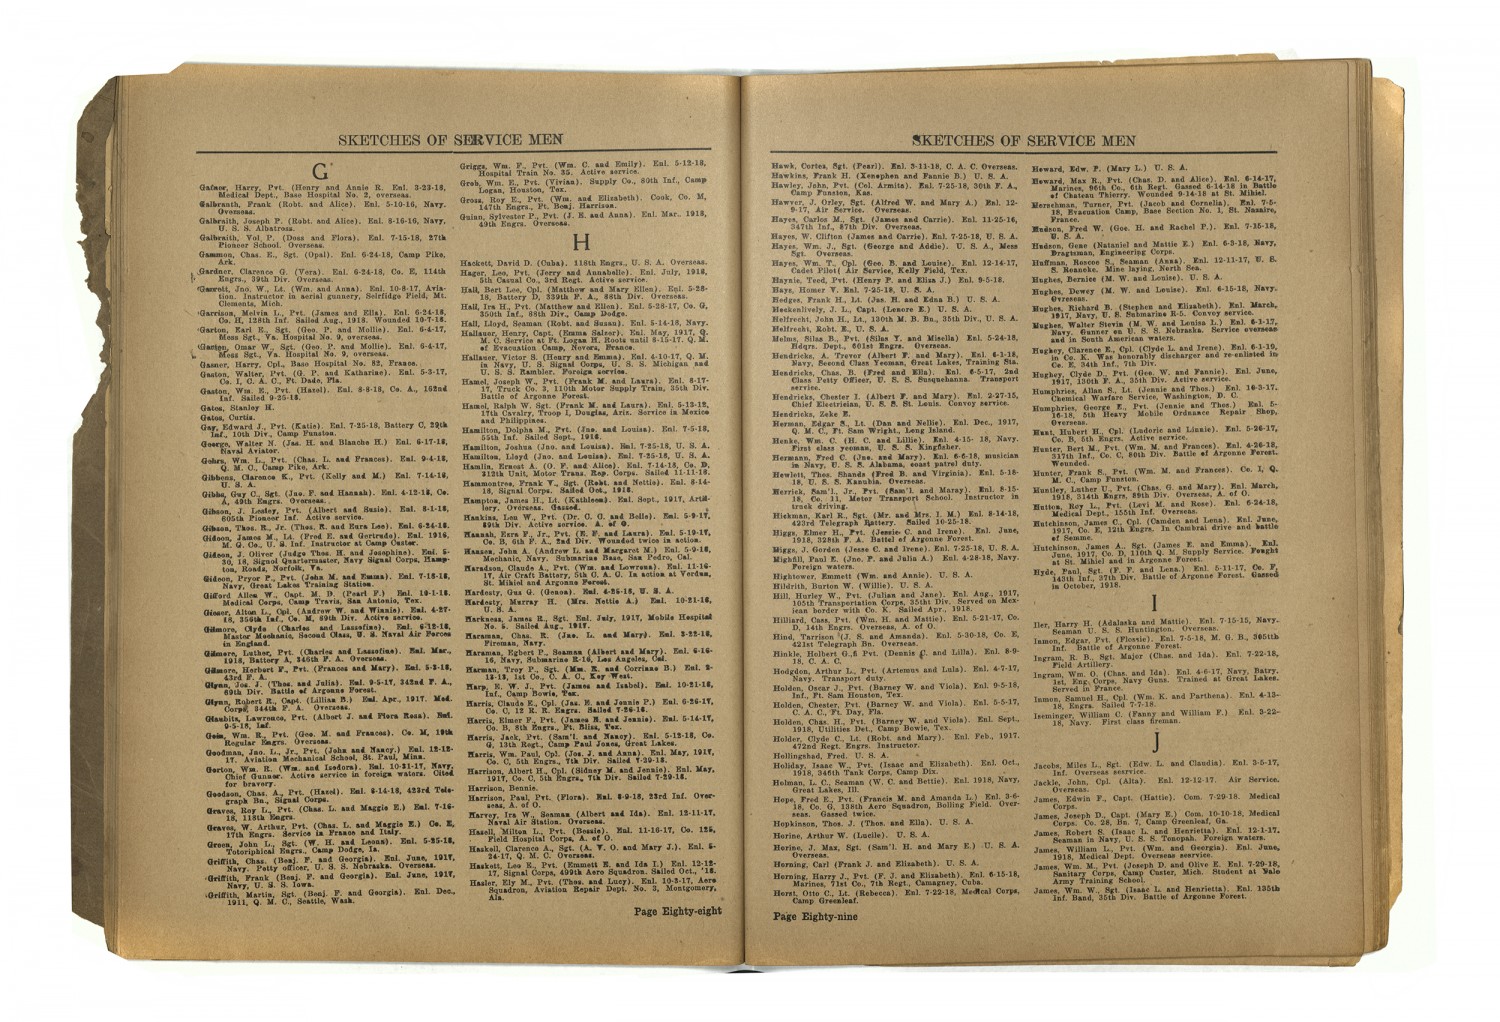 SKETCHES OF SERVICE MEN
G
Gafner, Harry, Pvt. (Henry and Annie R. Enl. 3-23-18,
Medical Dept., Base Hospital No. 2, overseas.
Galbranth, Frank (Robt. and Alice). Enl. 5-10-16, Navy.
Overseas.
Galbraith, Joseph P. (Robt. and Alice). Enl. 8-16-16, Navy,
U. S. S. Albatross.
Galbraith, Vol. P. (Doss and Flora). Enl. 7-15-18, 27th
Pioneer School. Overseas.
Gammon, Chas. E., Sgt. (Opal). Enl. 6-24-18, Camp Pike,
Ark.
Gardner, Clarence G. (Vera). Enl. 6-24-18, Co. E, 114th
Engrs., 39th Div. Overseas.
Garrett, Jno. W., Lt. (Wm. and Anna). Enl. 10-8-17, Avia-
tion. Instructor in aerial gunnery, Selfridge Field, Mt.
Clements, Mich.
Garrison, Melvin L., Pvt. (James and Ella). Enl. 6-24-18,
Co. H, 128th Inf. Sailed Aug., 1918. Wounded 10-7-18.
Garton, Earl E., Sgt. (Geo. P. and Mollie). Enl. 6-4-17,
Mess Sgt., Va. Hospital No. 9, overseas.
Garton, Omar W., Sgt. (Geo. P. and Mollie). Enl. 6-4-17,
Mess Sgt., Va. Hospital No. 9, overseas.
Gasner, Harry, Cpl., Base Hospital No. 82, France.
Gaston, Walter, Pvt. (G. P. and Katharine). Enl. 5-3-17,
Co. I, C. A. C., Ft. Dade, Fla.
Gaston, Wm. E., Pvt. (Hazel). Enl. 8-8-18, Co. A, 162nd
Inf. Sailed 9-25-18.
Gates, Stanley H.
Gates, Curtis.
Gay, Edward J., Pvt. (Katie). Enl. 7-25-18, Battery C, 29th
Inf., 10th Div., Camp Funston.
George, Walter N. (Jas. H. and Blanche H.) Enl. 6-17-18,
Naval Aviator.
Gehrs, Wm. L., Pvt. (Chas. L. and Frances). Enl. 9-4-18,
Q. M. C., Camp Pike, Ark.
Gibbens, Clarence K., Pvt. (Kelly and M.) Enl. 7-14-18,
U. S. A.
Gibbs, Guy C., Sgt. (Jno. F. and Hannah). Enl. 4-12-18, Co.
A, 49th Engrs. Overseas.
Gibson, J. Lesley, Pvt. (Albert and Susie). Enl. 8-1-18,
605th Pioneer Inf. Active service.
Gibson, Thos. R., Jr. (Thos. R. and Eura Lee). Enl. 6-24-18.
Gideon, James M., Lt. (Fred E. and Gertrude). Enl. 1916,
M. G. Co., U. S. Inf. Instructor at Camp Custer.
Gideon, J. Oliver (Judge Thos. H. and Josephine). Enl. 5-
30, 18, Signal Quartermaster, Navy Signal Corps, Hamp-
ton, Roads, Norfolk, Va.
Gideon, Pryor P., (John M. and Emma). Enl. 7-15-18,
Navy, Great Lakes Training Station.
Gifford Allen W., Capt. M. D. (Pearl F.) Enl. 10-1-18,
Medical Corps, Camp Travis, San Antonio, Tex.
Gieser, Alton L., Cpl. (Andrew W. and Winnie). Enl. 4-27-
18, 356th Inf., Co. M, 89th Div. Active service.
Gilmore, Clyde (Charles and Lassafine). Enl. 6-12-18,
Master Mechanic, Second Class, U. S. Naval Air Forces
in England.
Gilmore, Luther, Pvt. (Charles and Lassofine). Enl. Mar.,
1918, Battery A, 346th F. A. Overseas.
Gilmore, Herbert F., Pvt. (Frances and Mary). Enl. 5-2-18,
43rd F. A.
Glynn, Jos. J. (Thos. and Julia). Enl. 9-5-17, 342nd F. A.,
89th Div. Battle of Argonne Forest.
Glynn, Robert R., Capt. (Lillian B.) Enl. Apr., 1917. Med.
Corps, 344th F. A. Overseas.
Glaubitz, Lawrence, Pvt. (Albert J. and Flora Rosa). Enl.
9-5-18, Inf.
Goin, Wm. R., Pvt. (Geo. M. and Frances). Co. M, 19th
Regular Engrs. Overseas.
Goodman, Jno. L., Jr., Pvt. (John and Nancy.) Enl. 12-12-
17. Aviation Mechanical School, St. Paul, Minn.
Gorton, Wm. R. (Wm. and Isadora). Enl. 10-31-17, Navy,
Chief Gunner. Active service in foreign waters. Cited
for bravery.
Goodson, Chas. A., Pvt. (Hazel). Enl. 8-14-18, 423rd Tele-
graph Bn., Signal Corps.
Graves, Roy L., Pvt. (Chas. L. and Maggie E.) Enl. 7-16-
18, 118th Engrs.
Graves, W. Arthur, Pvt. (Chas. L. and Maggie E.) Co. E,
17th Engrs. Service in France and Italy.
Green, John L., Sgt. (W. H. and Leona). Enl. 5-25-18,
Totoriphical Engrs., Camp Dodge, Ia.
Griffith, Chas. (Benj. F. and Georgia). Enl. June, 1917,
Navy. Petty officer, U. S. S. Nebraska. Overseas.
Griffith, Frank (Benj. F. and Georgia). Enl. June, 1917,
Navy, U. S. S. Iowa.
Griffith, Martin, Sgt. (Benj. F. and Georgia). Enl. Dec.,
1911, Q. M. C., Seattle, Wash.
Griggs, Wm. F., Pvt. (Wm. C. and Emily). Enl. 5-12-18,
Hospital Train No. 35. Active service.
Grob, Wm. E., Pvt. (Vivian). Supply Co., 80th Inf., Camp
Logan, Houston, Tex.
Gross, Roy E., Pvt. (Wm. and Elizabeth). Cook, Co. M,
147th Engrs., Ft. Benj. Harrison.
Guinn, Sylvester P., Pvt. (J. R. and Anna). Enl. Mar. 1918,
49th Engrs. Overseas.
H
Hackett, David D. (Cuba). 116th Engrs., U. S. A. Overseas.
Hager, Leo, Pvt. (Jerry and Annabelle). Enl. July, 1918,
5th Casual Co., 3rd Regt. Active service.
Hall, Bert Lee, Cpl. (Matthew and Mary Ellen). Enl. 5-28-
18, Battery D, 339th F. A., 88th Div. Overseas.
Hall, Ira H., Pvt. (Matthew and Ellen). Enl. 5-28-17, Co. G,
350th Inf., 88th Div., Camp Dodge.
Hall, Lloyd, Seaman (Robt. and Susan). Enl. 5-14-18, Navy.
Hallauer, Henry, Capt. (Emma Salzer). Enl. May, 1917, Q.
M. C. Service at Ft. Logan H. Roots until 8-15-17. Q. M.
of Evacuation Camp, Novers, France.
Hallauer, Victor S. (Henry and Emma). Enl. 4-10-17, Q. M.
in Navy, U. S. Signal Corps, U. S. S. Michigan and
U. S. S. Rambler. Foreign service.
Hamel, Joseph W., Pvt. (Frank M. and Laura). Enl. 8-17-
17, Truck Co. 3, 110th Motor Supply Train, 35th Div.
Battle of Argonne Forest.
Hamel, Ralph W. Sgt. (Frank M. and Laura). Enl. 5-13-12,
17th Cavalry, Troop I, Douglas, Ariz. Service in Mexico
and Philippines.
Hamilton, Dolpha M., Pvt. (Jno. and Louisa). Enl. 7-5-18,
55th Inf. Sailed Sept., 1918.
Hamilton, Joshua (Jno. and Louisa). Enl. 7-25-18, U. S. A.
Hamilton, Lloyd (Jno. and Louisa). Enl. 7-25-18, U. S. A.
Hamlin, Ernest A. (O. F. and Alice). Enl. 7-14-18, Co. D,
312th Unit, Motor Trans. Rep. Corps. Sailed 11-11-18.
Hammontree, Frank V., Sgt. (Robt. and Nettie). Enl. 8-14-
18, Signal Corps. Sailed Oct., 1918.
Hampton, James H., Lt. (Kathleen). Enl. Sept., 1917, Artil-
lory. Overseas. Gassed.
Hankins, Lou W., Pvt. (Dr. C. G. and Belle). Enl. 5-9-17,
89th Div. Active service. A. of O.
Hannah, Ezra F., Jr., Pvt. (E. F. and Laura). Enl. 5-19-17,
Co. B, 6th F. A., 2nd Div. Wounded twice in action.
Hansen, John A. (Andrew L. and Margaret M.) Enl. 5-9-18,
Mechanic, Navy, Submarine Base, San Pedro, Cal.
Haradson, Claude A., Pvt. (Wm. and Lowrena). Enl. 11-16-
17, Air Craft Battery, 5th C. A. C. In action at Verdun,
St. Mihiel and Argonne Forest.
Hardesty, Gus G. (Genoa). Enl. 4-25-18, U. S. A.
Hardesty, Murray H. (Mrs. Nettie A.) Enl. 10-21-18,
U. S. A.
Harkness, James R., Sgt. Enl. July, 1917, Mobile Hospital
No. 5. Sailed Aug., 1917.
Haraman, Chas. R. (Jno. L. and Mary). Enl. 3-22-18,
Fireman, Navy.
Haraman, Egbert P., Seaman (Albert and Mary). Enl. 6-16-
16, Navy, Submarine R-16, Los Angeles, Cal.
Harman, Troy P., Sgt. (Mm. R. and Corrinne B.) Enl. 2-
12-13, 1st Co., C. A. C., Key West.
Harp, E. W. J., Pvt. (James and Isabel). Enl. 10-21-18,
Inf., Camp Bowie, Tex.
Harris, Claude E., Cpl. (Jas. E. and Jennie P.) Enl. 6-26-17,
Co. C, 12 R. R. Engrs. Sailed 7-26-18.
Harris, Elmer F., Pvt. (James N. and Jennie). Enl. 5-14-17,
Co. B, 8th Engrs., Ft. Bliss, Tex.
Harris, Jack, Pvt. (Sam'l. and Nancy). Enl. 5-12-18, Co.
G, 13th Regt., Camp Paul Jones, Great Lakes.
Harris, Wm. Paul, Cpl. (Jos. J. and Anna). Enl. May, 1917,
Co. C, 5th Engrs., 7th Div. Sailed 7-29-18.
Harrison, Albert H., Cpl. (Sidney M. and Jennie). Enl. May,
1917, Co. C, 5th Engrs., 7th Div. Sailed 7-29-18.
Harrison, Bennie.
Harrison, Paul, Pvt. (Flora). Enl. 8-9-18, 23rd Inf. Over-
seas, A. of O.
Harvey, Ira W., Seaman (Albert and Ida). Enl. 12-11-17,
Naval Air Station. Overseas.
Hasell, Milton L., Pvt. (Bessie). Enl. 11-16-17, Co. 125,
Field Hospital Corps, A. of O.
Haskell, Clarence A., Sgt. (A. V. O. and Mary J.). Enl. 5-
24-17, Q. M. C. Overseas.
Haskett, Leo E., Pvt. (Emmett E. and Ida I.) Enl. 12-12-
17, Signal Corps, 499th Aero Squadron. Sailed Oct., '18.
Hasler, Ely M., Pvt. (Thos. and Lucy). Enl. 10-3-17, Aero
Squadron, Aviation Repair Dept. No. 3, Montgomery,
Ala.
Page Eighty-eight
SKETCHES OF SERVICE MEN
Hawk, Cortez, Sgt. (Pearl). Enl. 3-11-18, C. A. C. Overseas.
Hawkins, Frank H. (Xenephen and Fannie B.) U. S. A.
Hawley, John, Pvt. (Col. Armitz). Enl. 7-25-18, 30th F. A.,
Camp Funston, Kas.
Hawver, J. Orley, Sgt. (Alfred W. and Mary A.) Enl. 12-
9-17, Air Service. Overseas.
Hayes, Carlos M., Sgt. (James and Carrie). Enl. 11-25-16,
347th Inf., 87th Div. Overseas.
Hayes, W. Clifton (James and Carrie). Enl. 7-25-18, U. S. A.
Hayes, Wm. J., Sgt. (George and Addie). U. S. A., Mess
Sgt. Overseas.
Hayes, Wm. T., Cpl. (Geo. B. and Louise). Enl. 12-14-17,
Cadet Pilot; Air Service, Kelly Field, Tex.
Haynie, Teed, Pvt. (Henry P. and Eliza J.) Enl. 9-5-18.
Hays, Homer V. Enl. 7-25-18, U. S. A.
Hedges, Frank H., Lt. (Jas. H. and Edna B.) U. S. A.
Heckenlively, J. L., Capt. (Lenore E.) U. S. A.
Helfrecht, John H., Lt., 130th M. B. Bn., 35th Div., U. S. A.
Helfrecht, Robt. E., U. S. A.
Helms, Silas B., Pvt. (Silas Y. and Misella) Enl. 5-24-18,
Hdqrs. Dept., 601st Engrs. Overseas.
Hendricks, A. Trevor (Albert F. and Mary). Enl. 6-1-18,
Navy, Second Class Yeoman, Great Lakes, Training Sta.
Hendricks, Chas. B. (Fred and Ella). Enl. 6-5-17, 2nd
Class Petty Officer, U. S. S. Susquehanna. Transport
service.
Hendricks, Chester I. (Albert F. and Mary). Enl. 2-27-15,
Chief Electrician, U. S. S. St. Louis. Convoy service.
Hendricks, Zeke E.
Herman, Edgar S., Lt. (Dan and Nellie). Enl. Dec., 1917,
Q. M. C., Ft. Sam Wright, Long Island.
Henke, Wm. C. (H. C. and Lillie). Enl. 4-15- 18, Navy.
First class yeoman, U. S. S. Kingfisher.
Hermann, Fred C. (Jno. and Mary). Enl. 6-6-18, musician
in Navy, U. S. S. Alabama, coast patrol duty.
Hewlett, Thos. Shands (Fred B. and Virginia). Enl. 5-18-
18, U. S. S. Kanubia. Overseas.
Herrick, Sam'l., Jr., Pvt. (Sam'l. and Maray). Enl. 8-15-
18, Co. 11, Motor Transport School. Instructor in
truck driving.
Hickman, Karl R., Sgt. (Mr. and Mrs. I. M.) Enl. 8-14-18,
423rd Telegraph Battery. Sailed 10-25-18.
Higgs, Elmer H., Pvt. (Jessie C. and Irene). Enl. June,
1918, 328th F. A. Battel of Argonne Forest.
Higgs, J. Gorden (Jesse C. and Irene). Enl. 7-25-18, U. S. A.
Highfill, Paul E. (Jno. P. and Julia A.) Enl. 4-28-18, Navy.
Foreign waters.
Hightower, Emmett (Wm. and Annie). U. S. A.
Hildrith, Burton W. (Willie). U. S. A.
Hill, Hurley W., Pvt. (Julian and Jane). Enl. Aug., 1917,
105th Transportation Corps, 35thl Div. Served on Mex-
ican border with Co. K. Sailed Apr., 1918.
Hilliard, Cass, Pvt. (Wm. H. and Mattie). Enl. 5-21-17, Co.
D, 14th Engrs. Overseas, A. of O.
Hind, Tarrison (J. S. and Amanda). Enl. 5-30-18, Co. E,
421st Telegraph Bn. Overseas.
Hinkle, Holbert G., Pvt. (Dennis C. and Lilla). Enl. 8-9-
18, C. A. C.
Hodgdon, Arthur L., Pvt. (Artemus and Lula). Enl. 4-7-17,
Navy. Transport duty.
Holden, Oscar J., Pvt. (Barney W. and Viola). Enl. 9-5-18,
Inf., Ft. Sam Houston, Tex.
Holden, Chester, Pvt. (Barney W. and Viola). Enl. 5-5-17,
C. A. C., Ft. Day, Fla.
Holden, Chas. H., Pvt. (Barney W. and Viola). Enl. Sept.,
1918, Utilities Det., Camp Bowie, Tex.
Holder, Clyde C., Lt. (Robt. and Mary). Enl. Feb., 1917.
472nd Regt. Engrs. Instructor.
Hollingshad, Fred. U. S. A.
Holiday, Isaac W., Pvt. (Isaac and Elizabeth). Enl. Oct.,
1918, 346th Tank Corps, Camp Dix.
Holman, L. C., Seaman (W. C. and Bettie). Enl. 1918, Navy,
Great Lakes, Ill.
Hope, Fred E., Pvt. (Francis M. and Amanda L.) Enl. 3-6-
18, Co. G, 138th Aero Squadron, Bolling Field. Over-
seas. Gassed twice.
Hopkinson, Thos. J. (Thos. and Ella). U. S. A.
Horine, Arthur W. (Lucile). U. S. A.
Horine, J. Max, Sgt. (Sam'l. H. and Mary E.) U. S. A.
Overseas.
Horning, Carl (Frank J. and Elizabeth). U. S. A.
Horning, Harry J., Pvt. (F. J. and Elizabeth). Enl. 6-15-18,
Marines, 71st Co., 7th Regt., Camagney, Cuba.
Horst, Otto C., Lt. (Rebecca). Enl. 7-22-18, Medical Corps,
Camp Greenleaf.
Howard, Edw. P. (Mary L.) U. S. A.
Howard, Max R., Pvt. (Chas. D. and Alice). Enl. 6-14-17,
Marines, 96th Co., 6th Regt. Gassed 6-14-18 in Battle
of Chateau Thierry. Wounded 9-14-18 at St. Mihiel.
Herschman, Turner, Pvt. (Jacob and Cornelia). Enl. 7-5-
18, Evacuation Camp, Base Section No. 1, St. Nazaire,
France.
Hudson, Fred W. (Geo. H. and Rachel P.). Enl. 7-15-18,
U. S. A.
Hudson, Gene (Nataniel and Mattie E.) Enl. 6-3-18, Navy,
Dragtsman, Engineering Corps.
Huffman, Roscoe S., Seaman (Anna). Enl. 12-11-17, U. S.
S. Roanoke. Mine laying, North Sea.
Hughes, Bernice (M. W. and Louise). U. S. A.
Hughes, Dewey (M. W. and Louise). Enl. 6-15-18, Navy.
Overseas.
Hughes, Richard B. (Stephen and Elizabeth). Enl. March,
1917, Navy, U. S. Submarine R-5. Convoy service.
Hughes, Walter Stevin (M. W. and Louisa L.) Enl. 6-1-17,
Navy, Gunner on U. S. S. Nebraska. Service overseas
and in South American waters.
Hughey, Clarence E., Cpl. (Clyde L. and Irene). Enl. 6-1-19,
in Co. K. Was honorably discharger and re-enlisted in
Co. E, 34th Inf., 7th Div.
Hughey, Clyde D., Pvt. (Geo. W. and Fannie). Enl. June,
1917, 130th F. A., 35th Div. Active service.
Humphries, Allan S., Lt. (Jennie and Thos.) Enl. 10-3-17,
Chemical Warfare Service, Washington, D. C.
Humphries, George E., Pvt. (Jennie and Thos.) Enl. 5-
16-18, 5th Heavy Mobile Ordnance Repair Shop,
Overseas.
Hunt, Hubert H., Cpl. (Luderic and Linnie). Enl. 5-26-17,
Co. B, 5th Engrs. Active service.
Hunter, Bert M., Pvt. (Wm. M. and Frances). Enl. 4-26-18,
317th Inf., Co. C, 80th Div. Battle of Argonne Forest.
Wounded.
Hunter, Frank S., Pvt. (Wm. M. and Frances). Co. I, Q.
M. C., Camp Funston.
Huntley, Luther U., Pvt. (Chas. G. and Mary). Enl. March,
1918, 314th Engrs., 89th Div. Overseas, A. of O.
Hutton, Roy L., Pvt. (Levi M. and Rose). Enl. 6-24-18,
Medical Dept., 155th Inf. Overseas.
Hutchinson, James C., Cpl. (Camden and Lena). Enl. June,
1917, Co. E, 12th Engrs. In Cambrai drive and battle
of Somme.
Hutchinson, James A., Sgt. (James E. and Emma). Enl.
June, 1917, Co. D, 110th Q. M. Supply Service. Fought
at St. Mihiel and in Argonne Forest.
Hyde, Paul, Sgt. (F. F. and Lena.) Enl. 5-11-17, Co. F,
143rd Inf., 37th Div. Battle of Argonne Forest. Gassed
in October, 1918.
I
Iler, Harry H. (Adalaska and Mattie). Enl. 7-15-15, Navy.
Seaman U. S. S. Huntington. Overseas.
Inmon, Edgar, Pvt. (Flossie). Enl. 7-5-18, M. G. B., 305th
Inf. Battle of Argonne Forest.
Ingram, R. B., Sgt. Major (Chas. and Ida). Enl. 7-22-18,
Field Artillery.
Ingram, Wm. O. (Chas. and Ida). Enl. 4-6-17, Navy, Batry.
1st, Eng. Corps, Navy Guns. Trained at Great Lakes.
Served in France.
Inmon, Samuel H., Cpl. (Wm. K. and Parthena). Enl. 4-13-
18, Engrs. Sailed 7-7-18.
Iseminger, William C. (Fanny and William F.) Enl. 3-22-
18, Navy. First class fireman.
J
Jacobs, Miles L., Sgt. (Edw. L. and Claudia). Enl. 3-5-17,
Inf. Overseas service.
Jackle, John, Cpl. (Alta). Enl. 12-12-17. Air Service.
Overseas.
James, Edwin F., Capt. (Hattie). Com. 7-29-18. Medical
Corps.
James, Joseph D., Capt. (Mary E.) Com. 10-10-18, Medical
Corps. Co. 28, Bn. 7, Camp Greenleaf, Ga.
James, Robert S. (Isaac L. and Henrietta). Enl. 12-1-17.
Seaman in Navy, U. S. S. Tonopah. Foreign waters.
James, William L., Pvt. (Wm. and Georgia). Enl. June,
1918, Medical Dept. Overseas seervice.
James, Wm. M., Pvt. (Joseph D. and Olive E. Enl. 7-29-18,
Sanitary Corps, Camp Custer, Mich. Student at Yale
Army Training School.
James, Wm. W., Sgt. (Isaac L. and Henrietta). Enl. 135th
Inf. Band, 35th Div. Battle of Argonne Forest.
Page Eighty-nine